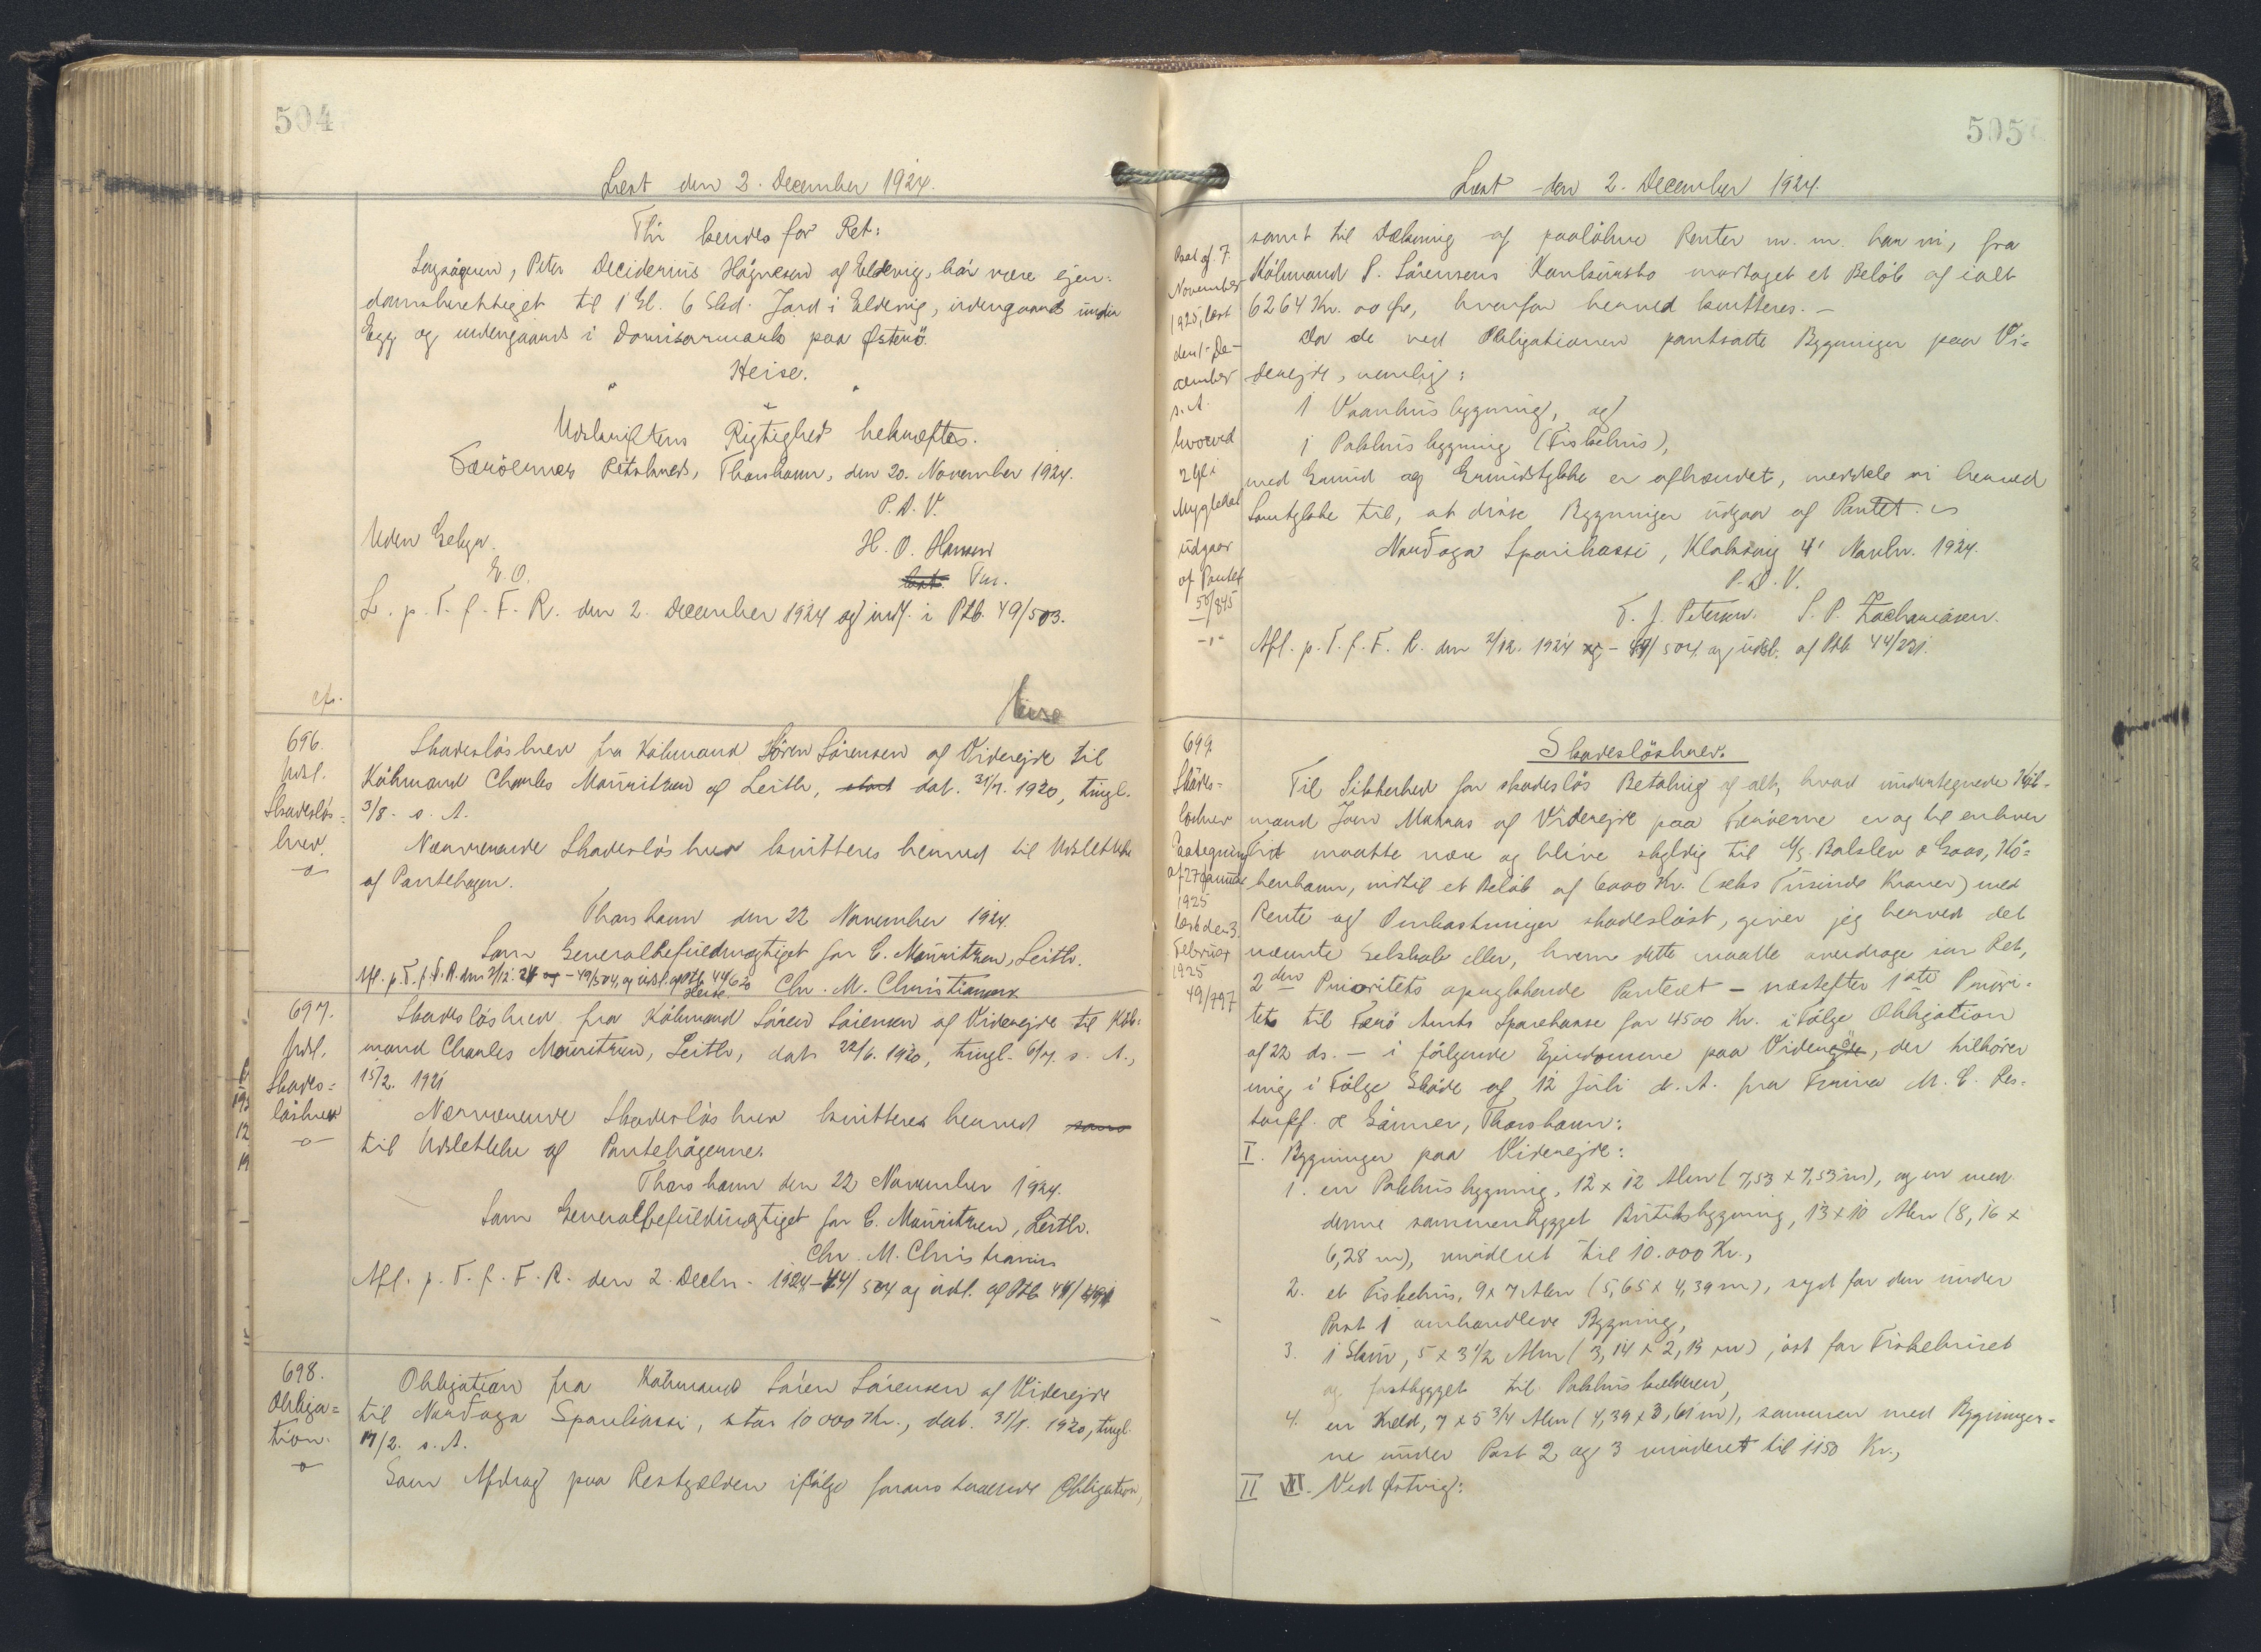 504
Læst den 2. December 1924.
Thi kendes for Ret:
Sagsøgeren, Peter Deciderius Høgnesen af Eldevig, bør være ejen-
domsberettiget til 1 Gl. 6 Skd. Jord i Eldevig, indengaards under
Egg og udengaards i Domisarmark paa Østerö.
Heise.
Udskriftens Rigtighed bekræftes.
Færöernes Retskreds, Thorshavn, den 20. November 1924.
P. D. V.
Uden Gebyr.
H. O. Hansen
E. O.
Fm.
L. p. T. f. F. R. den 2. December 1924 og indf. i Ptb. 49/503.
Heise
cfr.
696.
Udsl.
Skadeslös-
brev.
Skadeslösbrev fra Köbmand Sören Sörensen af Viderejde til
Köbmand Charles Mauritzen af Leith, dat. 31/7. 1920, tingl.
3/8. s. A.
Nærværende Skadeslösbrev kvitteres herved til Udslettelse
af Pantebogen.
Thorshavn den 22 November 1924.
Som Generalbefuldmægtiget for C. Mauritzen, Leith.
Afl. p. T. f. F. R. den 2/12. 24 - 49/504, og udsl. af Ptb. 44/620
Heise.
Chr. M. Christiansen
697.
Udsl.
Skades-
lösbrev
Skadeslösbrev fra Köbmand Sören Sörensen af Viderejde til Köb-
mand Charles Mauritzen, Leith, dat. 22/6. 1920, tingl. 6/7. s. A.,
15/2. 1921
Nærværende Skadeslösbrev kvitteres herved
til Udslettelse af Pantebögerne.
Thorshavn den 22 November 1924.
Som Generalbefuldmægtiget for C. Mauritzen, Leith.
Chr. M. Christiansen
Afl. p. T. f. F. R. den 2. Decbr. 1924 - 504 og udsl. af Ptb.
698.
Obliga-
tion.
Obligation fra Köbmand Sören Sörensen af Viderejde
til Nordoya Sparikassi, stor 10000 Kr., dat. 31/1. 1920, tingl.
17/2. s. A.
Som Afdrag paa Restgælden ifölge foranstaaende Obligation,
505
Læst den 2. December 1924.
samt til Dækning af paalöbne Renter m. m. har vi, fra
Köbmand S. Sörensens Konkursbo modtaget et Belöb af ialt
6264 Kr. 00 Öre, hvorfor herved kvitteres. -
Da de ved Obligationen pantsatte Bygninger paa Vi-
derejde, nemlig:
1 Vaanhusbygning, og
1 Pakhusbygning (Fiskehus),
med Grund og Grundstykke er afhændet, meddele vi herved
Samtykke til, at disse Bygninger udgaar af Pantet.
Nordoya Sparikassi, Klaksvig 4' Novbr. 1924.
P. D. V.
F. J. Petersen. S. P. Zachariasen.
Afl. p. T. f. F. R. den 2/12. 1924 - 49/504. og udsl. af Ptb. 44/221.
Paat. af 7.
November
1925, læst
den 1. De-
cember
s. A.
hvorved
Mygledal
udgaar
af Pantet
50/845
699.
Skades-
lösbrev
Paategning
af 27 Januar
1925
læst den 3.
Februar
1925
49/797
Skadeslösbrev.
Til Sikkerhed for skadeslös Betaling af alt, hvad undertegnede Köb-
mand Joen Matras af Viderejde paa Færöerne er og til enhver
Tid maatte være og blive skyldig til A/S Balslev & Goos, Kö-
benhavn, indtil et Belöb af 6000 Kr. (seks Tusinde Kroner) med
Rente og Omkostninger skadeslöst, giver jeg herved det
nævnte Selskab eller, hvem dette maatte overdrage sin Ret,
2den Prioritets oprykkende Panteret - næstefter 1ste Priori-
tet til Færö Amts Sparekasse for 4500 Kr. i Fölge Obligation
af 22 ds. - i fölgende Ejendomme paa Viderejde, der tilhörer
mig i Fölge Sköde af 12 Juli d. A. fra Firma M. C. Res-
torff & Sönner, Thorshavn:
I. Bygninger paa Viderejde:
1. en Pakhusbygning, 12 x 12 Alen (7,53 x 7,53 m), og en med
denne sammenbygget Butiksbygning, 13 x 10 Alen (8,16 x
6,28 m), vurderet til 10.000 Kr.,
2. et Fiskehus, 9 x 7 Alen (5,65 x 4,39 m), syd for den under
Post 1 omhandlede Bygning,
3. 1 Skur, 5 x 3 1/2 Alen (3,14 x 2,19 m), öst for Fiskehuset
og fastbygget til Pakhuskælderen,
4. en Kæld, 7 x 5 3/4 Alen (4,39 x 3,61 m), sammen med Bygninger-
ne under Post 2 og 3 vurderet til 1150 Kr.,
II. Ved Østvig: